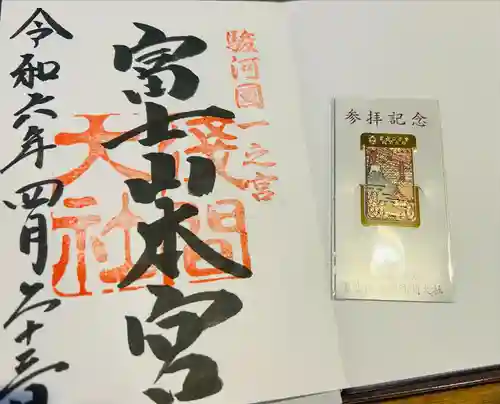 駿河國一之宮
富士山本宮
浅間
大社
令和六年四月二十三日
参拝記念